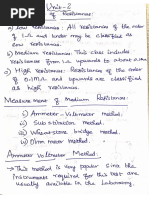 Unit-2
of Resistance:
a) Low resistance: All resistances of the order
of 1Ω and under may be classified as
Low resistance.
b) Medium resistance: This class includes
resistances from 1Ω upwards to about 0.1MΩ
c) High resistance: Resistances of the order
of 0.1MΩ and upwards are classified as
High resistances.
Measurement of Medium Resistance:
i) Ammeter-Voltmeter method.
ii) Substitution method.
iii) Wheatstone bridge method.
iv) Ohm meter method.
Ammeter Voltmeter Method:
→ This method is very popular since the
instruments required for this test are
usually available in the laboratory.